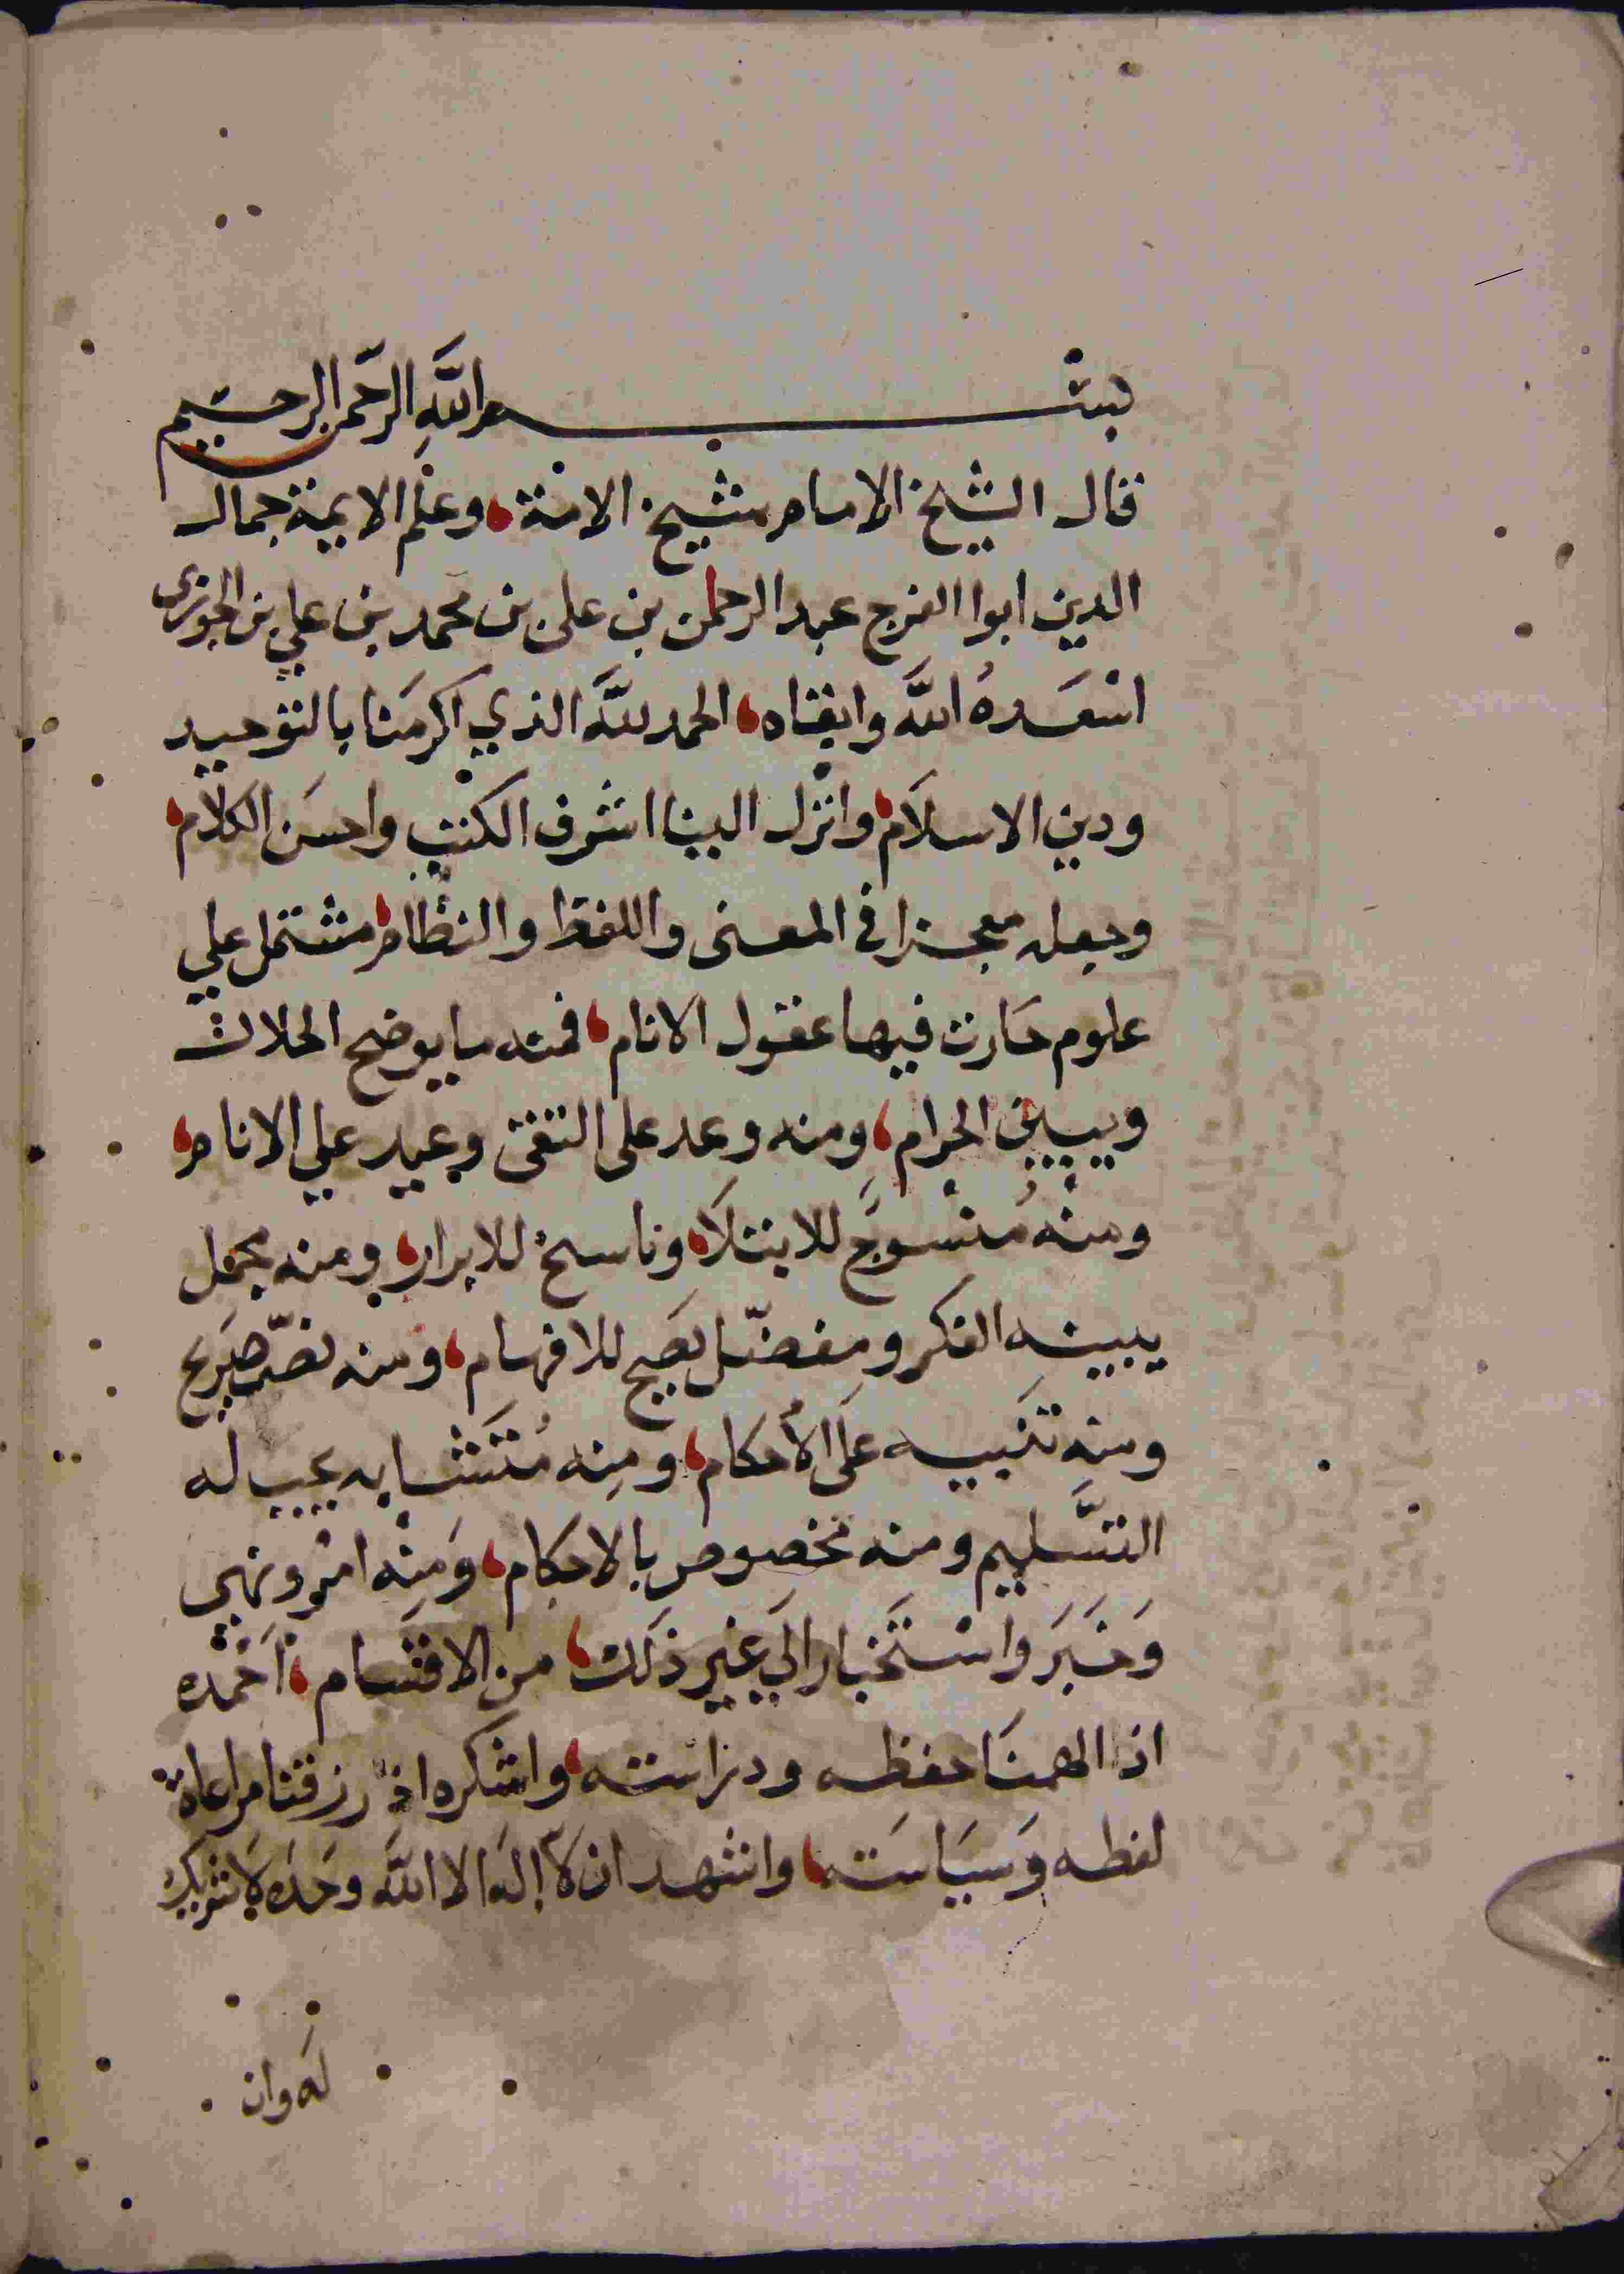 بسم الله الرحمن الرحيم
قال الشيخ الامام شيخ الامة، وعلم الايمة جمال
الدين ابوا الفرج عبد الرحمن بن على بن محمد بن علي بن الجوزى
اسْعَدهُ اللَّه وابقاه، الحمد للَّه الذي اكرمَنا بالتوحيد
ودين الاسلَام، وانزل الينا اشرف الكتب واحسَن الكلام،
وجعله معجزا في المعنى واللفظ والنظام، مشتمل علي
علوم حَارت فيها عقول الانام، فمنه ما يوضح الحلال
ويبين الحرام، ومنه وعد على التقى وعيد علي الاثام،
ومنه مُنسوخ للابتلَا، وناسخ للابرار، ومنه مجمل
يبينه الفكر ومفصّل يصح للافهام، ومنه نصّ صَريح
ومنه تَنبيه عَلَى الأحكام، ومِنه مُتَشابه يجب له
التسَّليم ومنه مخصوص بالاحكام، وَمِنْه امْر ونهي
وَخبَرَ واسْتَخبار الَي غير ذلك، من الاقسَام، احْمده
اذ الهمنَا حفظه ودراسته، واشكره اذ رزقنا مراعاة
لفظه وَسيَاسَته، واشهد ان لا إله الا اللَّه وحَده لَا شريك
لَه وان